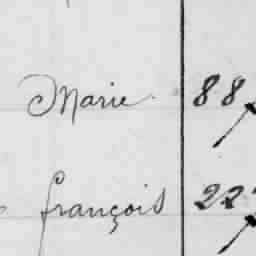 Marie 88
françois 22